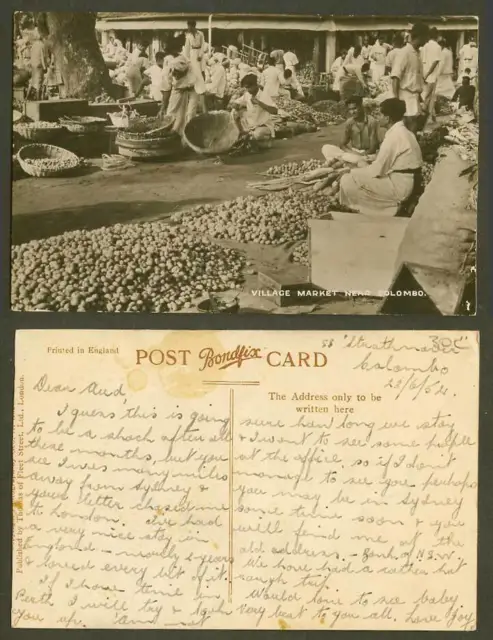 VILLAGE MARKET NEAR COLOMBO.
Printed in England
POST Bondfix CARD
The Address only to be
written here
Published by of Fleet Street, Ltd., London.
Colombo
Dear Aud,
I guess this is going
to be a shock after all
these months, but you
see I was many miles
away from Sydney &
your letter chased me
to London. I've had
a very nice stay in
England – nearly 2 years
& loved every bit of it.
If I have time in
Perth I will try & look
you up. Am not
sure how long we stay
& I want to see some people
at the office. so if I don't
manage to see you perhaps
you may be in Sydney
some time soon & you
will find me at the
old address – Bank of N.S.W.
We have had a rather hot
rough trip.
Would love to see baby
Very best to you all. love Joy